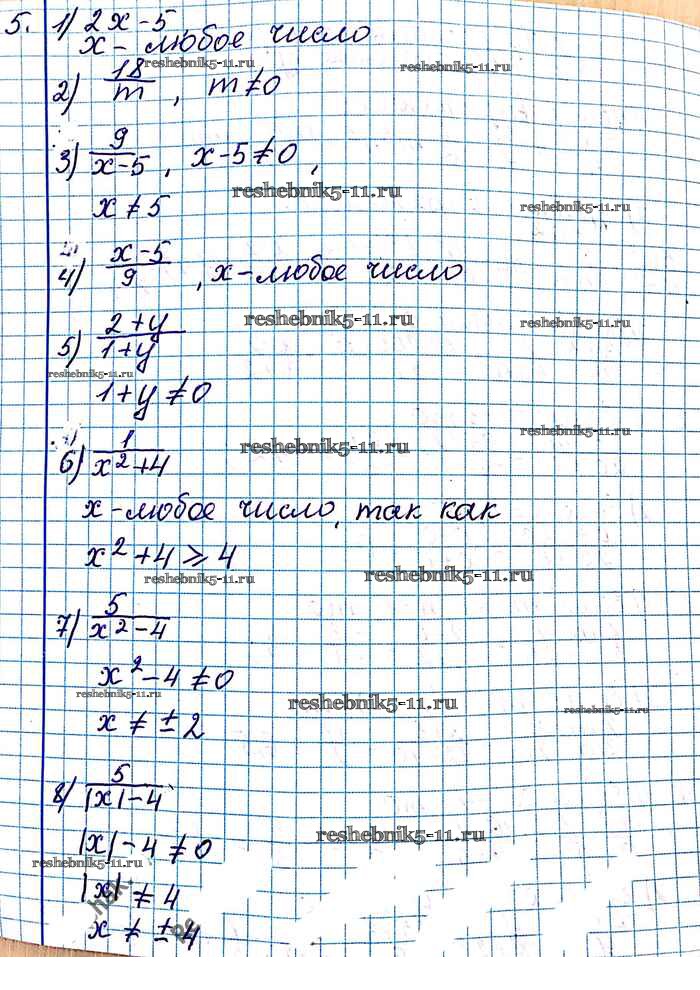 5. 1) 2x-5
x - любое число
reshebnik5-11.ru reshebnik5-11.ru
2) 18/m, m≠0
3) 9/(x-5), x-5≠0,
reshebnik5-11.ru
x≠5 reshebnik5-11.ru
4) (x-5)/9, x-любое число
reshebnik5-11.ru reshebnik5-11.ru
5) (2+y)/(1+y)
reshebnik5-11.ru reshebnik5-11.ru
1+y≠0
reshebnik5-11.ru reshebnik5-11.ru
6) 1/(x²+4)
x-любое число, так как
x²+4⩾4
reshebnik5-11.ru reshebnik5-11.ru
7) 5/(x²-4)
x²-4≠0
reshebnik5-11.ru reshebnik5-11.ru reshebnik5-11.ru
x≠±2
8) 5/(|x|-4)
|x|-4≠0 reshebnik5-11.ru
reshebnik5-11.ru
|x|≠4
x≠±4